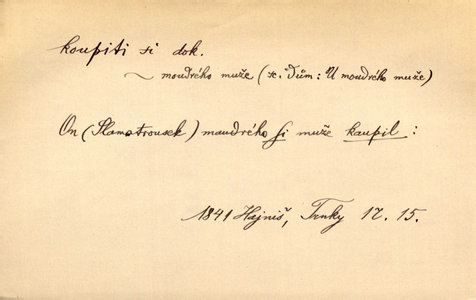 koupiti si dok.
~ moudrého muže (sc. Dům: U moudrého muže)
On (Slamotrousek) maudrého si muže kaupil :
1841 Hajniš, Trnky 17. 15.